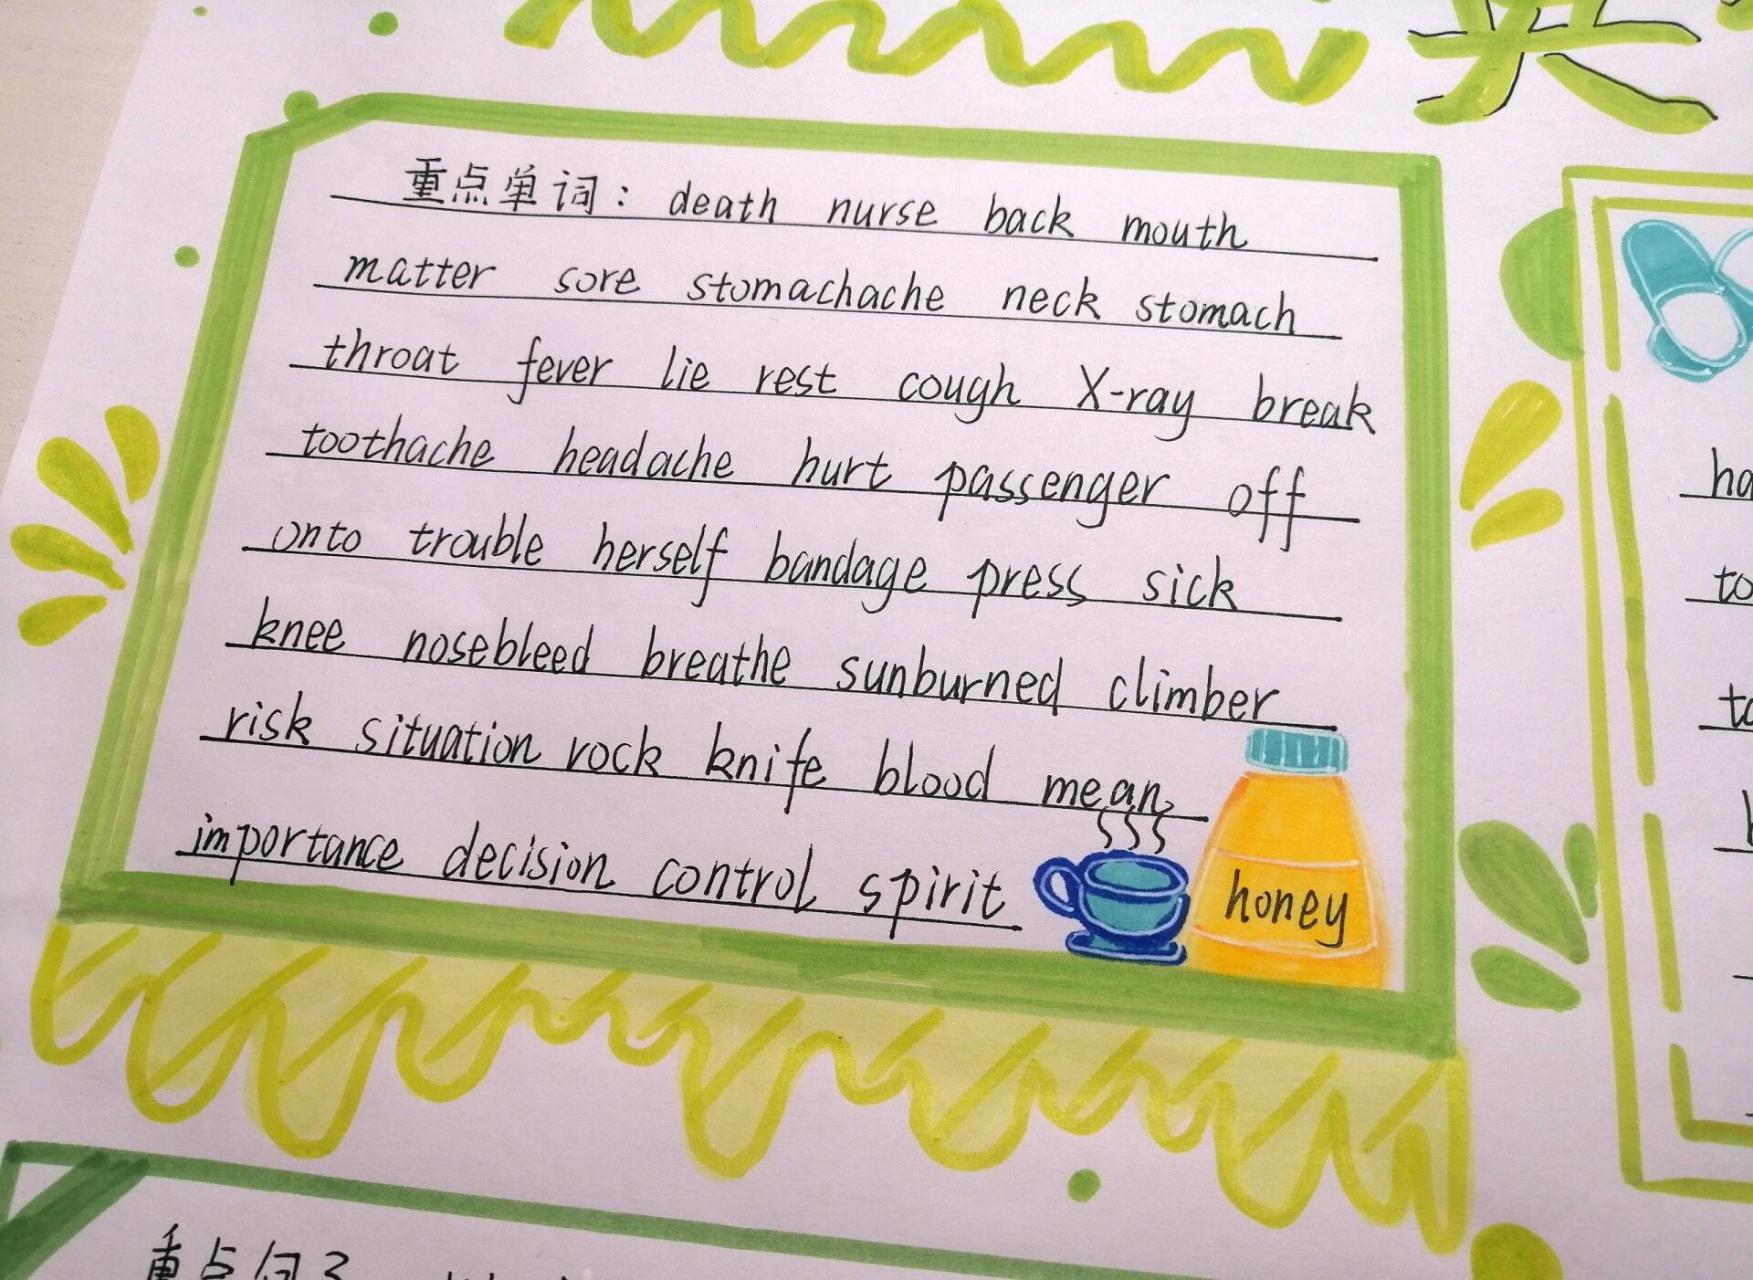 英
重点单词： death nurse back mouth
matter sore stomachache neck stomach
throat fever lie rest cough X-ray break
toothache headache hurt passenger off
onto trouble herself bandage press sick
knee nosebleed breathe sunburned climber
risk situation rock knife blood mean
importance decision control spirit
honey
ha
to
重点句子